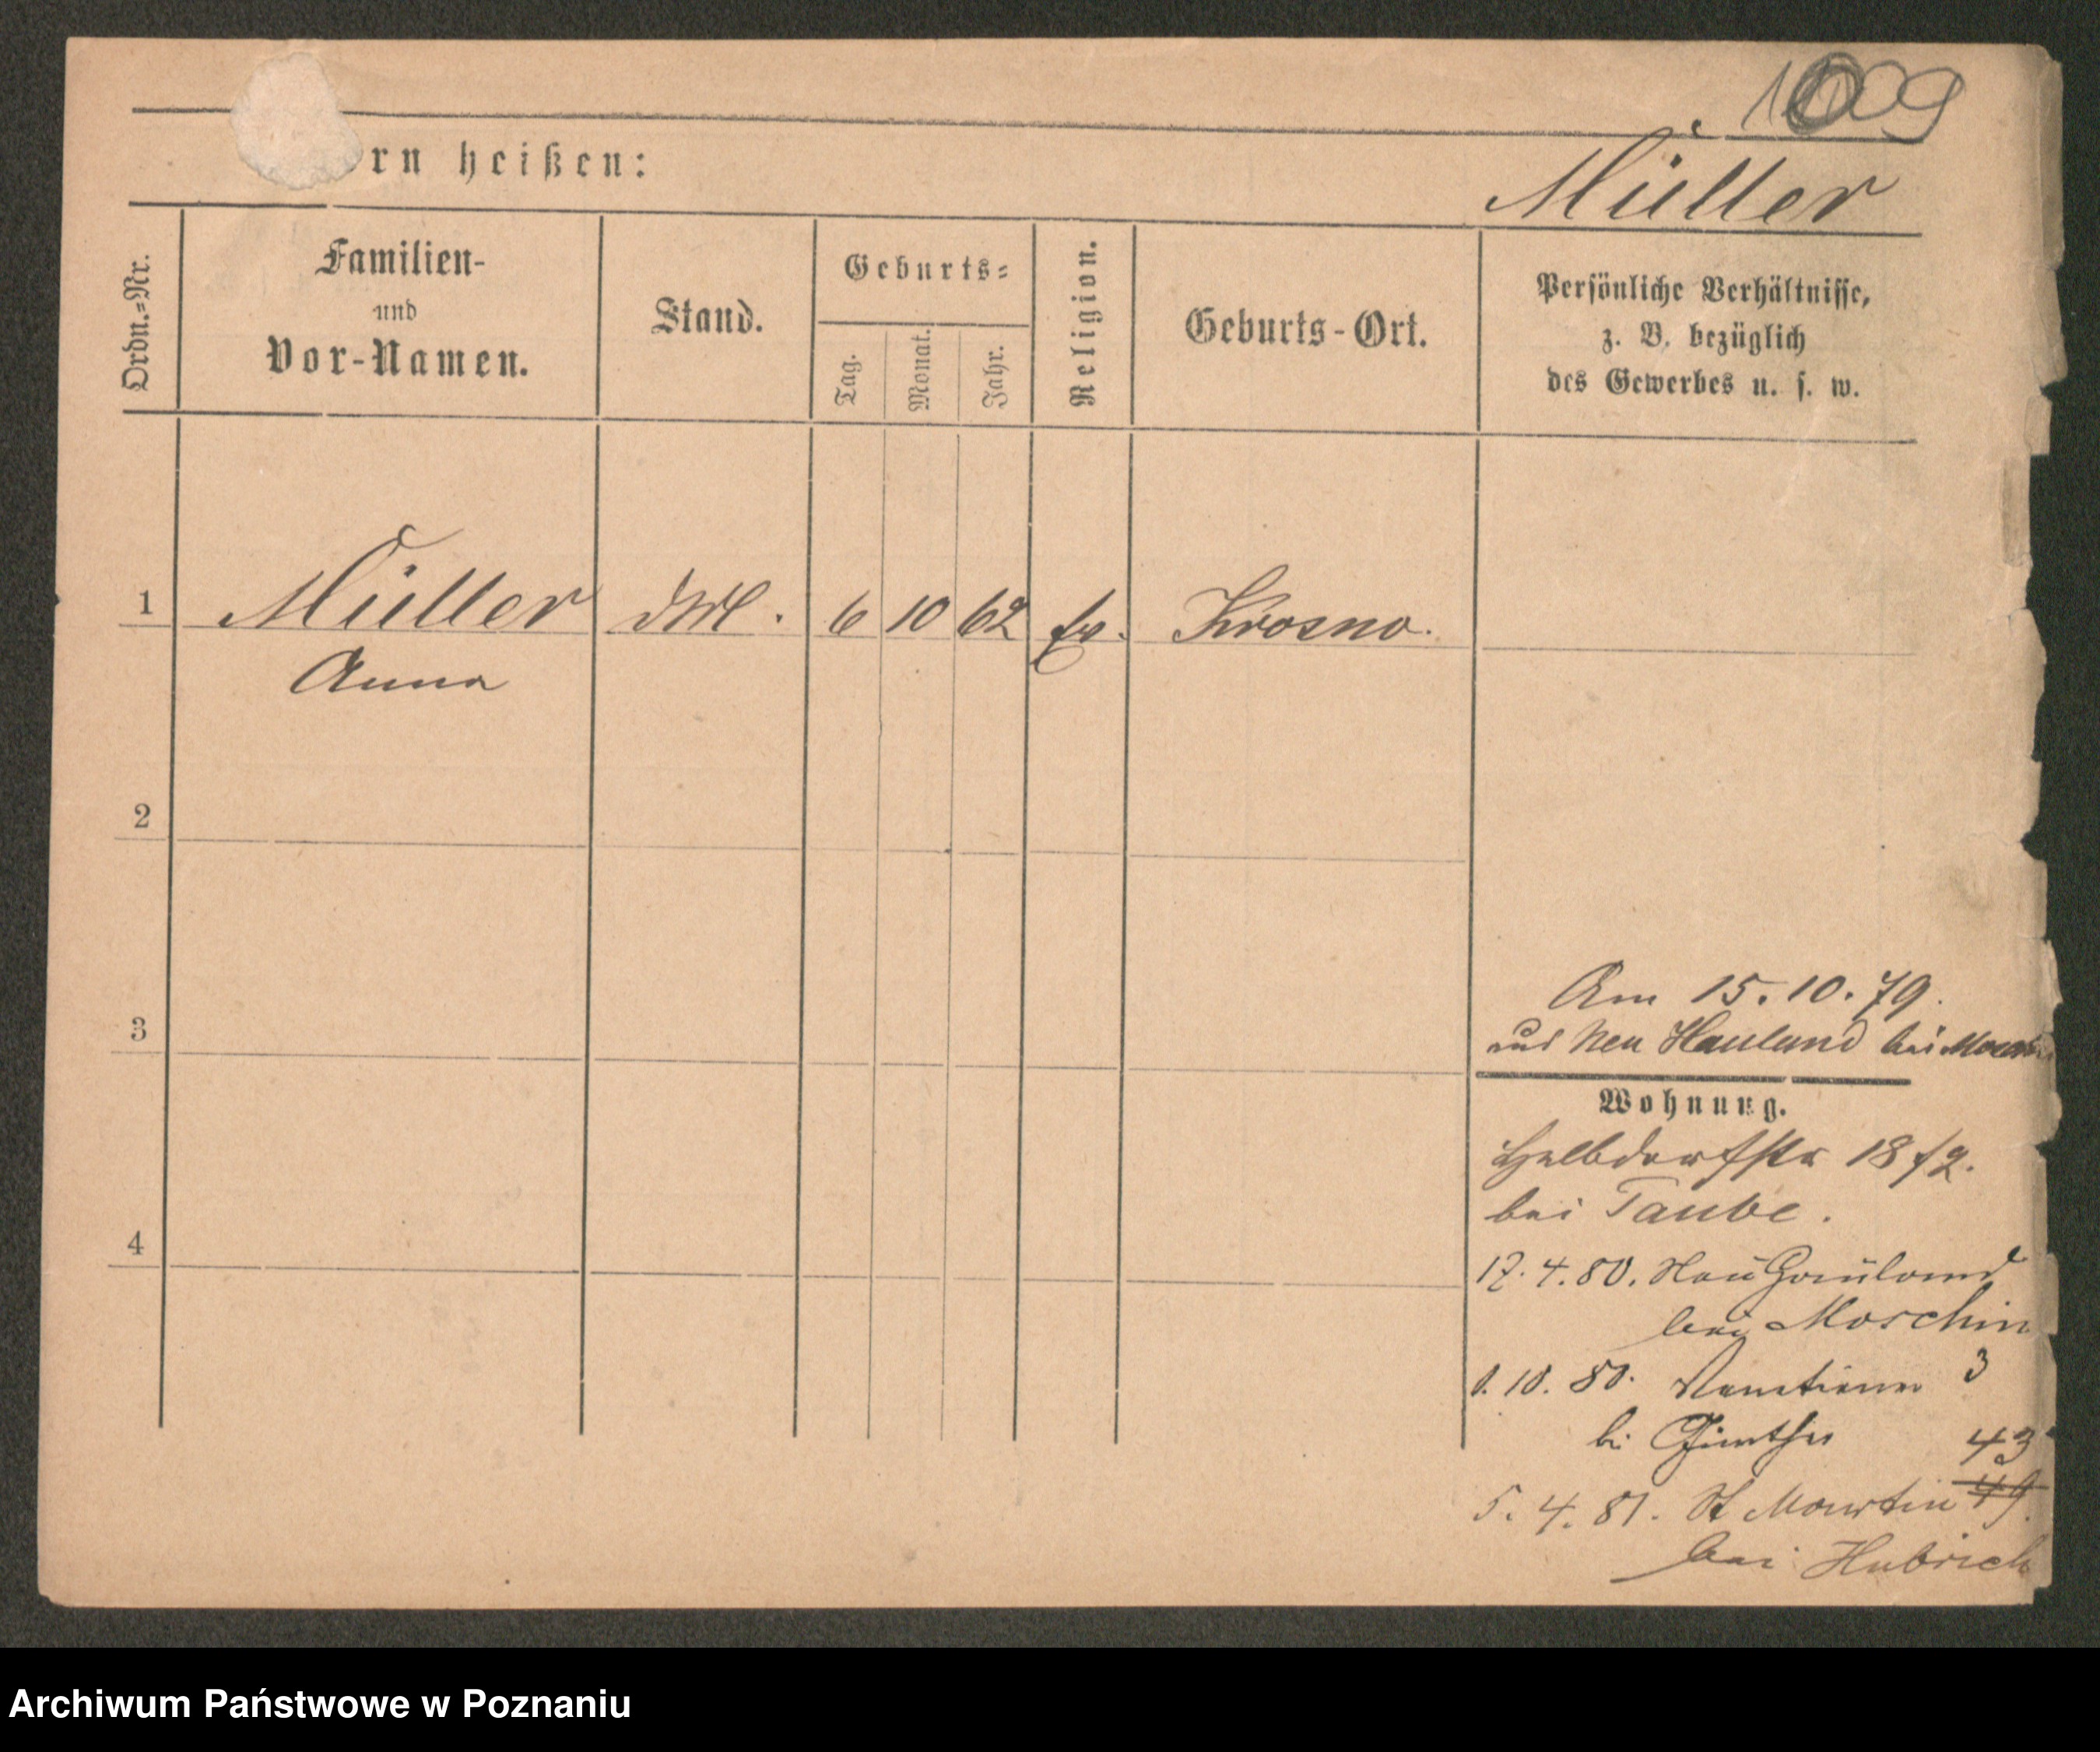 109
rn heißen:
Müller
Ordn.=Nr.
Familien-
und
Vor-Namen.
Stand.
Geburts=
Tag.
Monat.
Jahr.
Religion.
Geburts-Ort.
Persönliche Verhältnisse,
z. B. bezüglich
des Gewerbes u. s. w.
1 Müller 6 10 62 ev. Krosno.
Anna
2
3
4
Am 15.10.79.
aus Neu Hauland bei
Wohnung.
Halbdorfstr 18
bei Taube.
17.4.80. Neu Hauland
bei Moschin
1.10.80. 3
bei Günther
43
5.4.81. St Martin 49.
bei Hubrich
Archiwum Państwowe w Poznaniu